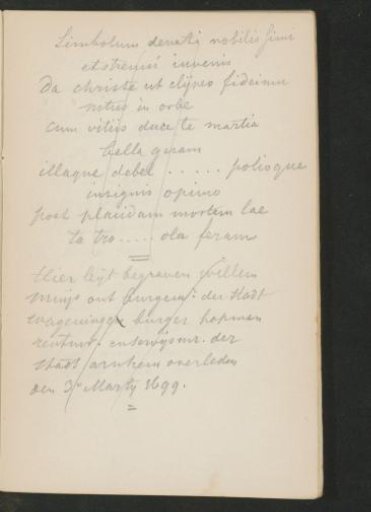 Simbolum denati nobilissimi
et strenui iuvenis
Da christe ut clypeo fidei
in orbe
cum vitiis duce te martia
bella geram
illaque debel ...... potioque
insignis opimo
post placidam mortem lae
to tro ..... ola feram
Hier leijt begraven Willem
out burgem: der Stadt
wageningen burger hopman
rentmr. der
Stadt arnhem overleden
den 3n Marty 1699.